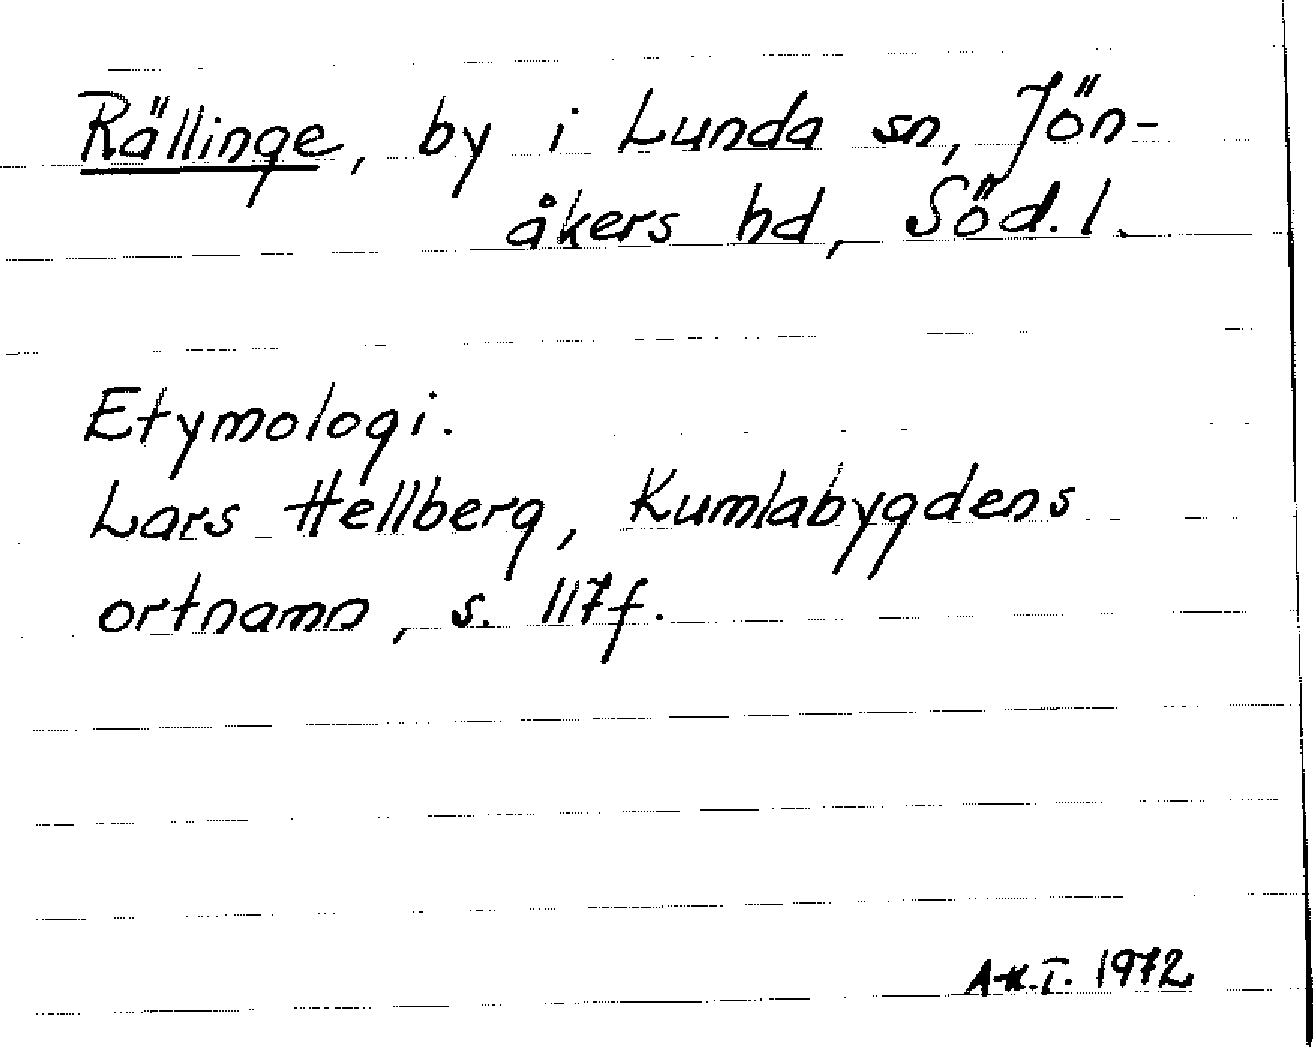 Rällinge, by i Lunda sn, Jön-
åkers hd, Söd.l.
Etymologi.
Lars Hellberg, Kumlabygdens
ortnamn, s. 117f.
1972